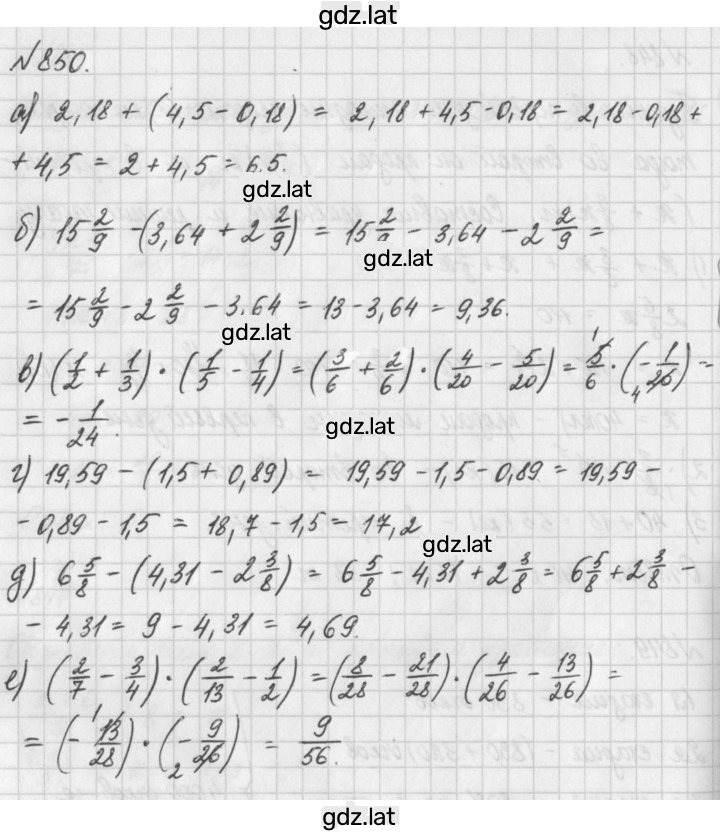 gdz.lat
№850.
а) 2,18 + (4,5 - 0,18) = 2,18 + 4,5 - 0,18 = 2,18 - 0,18 +
+ 4,5 = 2 + 4,5 = 6.5.
gdz.lat
б) 15 2/9 - (3,64 + 2 2/9) = 15 2/9 - 3,64 - 2 2/9 =
gdz.lat
= 15 2/9 - 2 2/9 - 3.64 = 13 - 3,64 = 9,36.
gdz.lat
в) (1/2 + 1/3) · (1/5 - 1/4) = (3/6 + 2/6) · (4/20 - 5/20) = 5/6 · (- 1/20) =
= - 1/24.
gdz.lat
г) 19,59 - (1,5 + 0,89) = 19,59 - 1,5 - 0,89 = 19,59 -
- 0,89 - 1,5 = 18,7 - 1,5 = 17,2
gdz.lat
д) 6 5/8 - (4,31 - 2 3/8) = 6 5/8 - 4,31 + 2 3/8 = 6 5/8 + 2 3/8 -
- 4,31 = 9 - 4,31 = 4,69.
е) (2/7 - 3/4) · (2/13 - 1/2) = (8/28 - 21/28) · (4/26 - 13/26) =
= (- 13/28) · (- 9/26) = 9/56.
gdz.lat